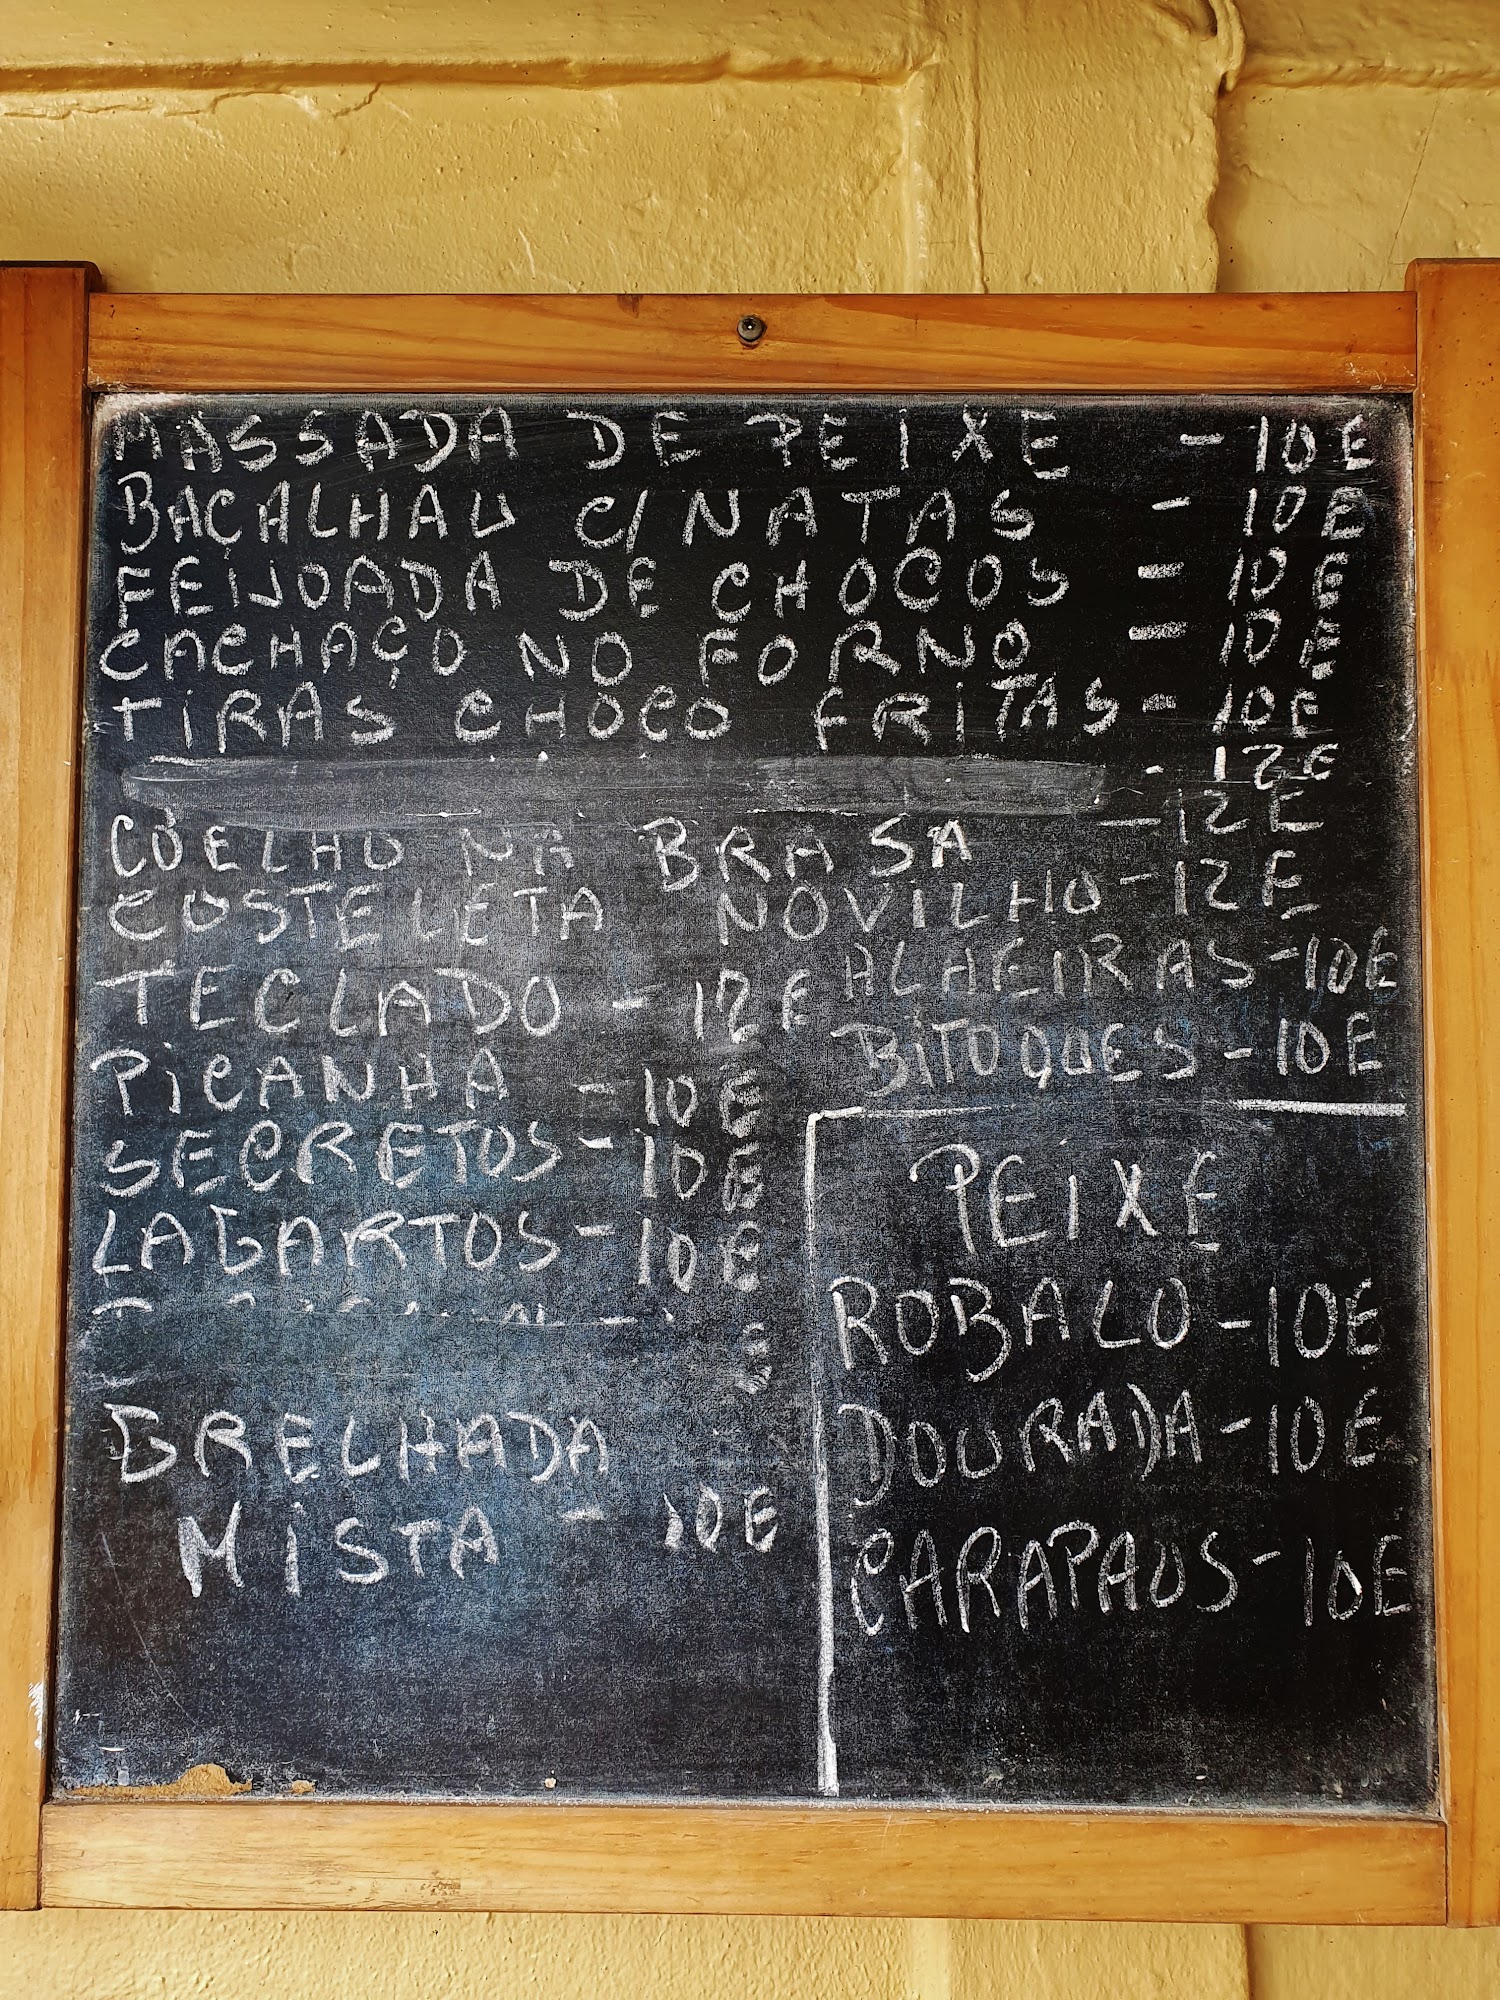 MASSADA DE PEIXE - 10E
BAÇALHAU C/ NATAS - 10E
FEIJOADA DE CHOCOS - 10E
CACHAÇO NO FORNO - 10E
TIRAS CHOCO FRITAS - 10E
- 12E
COELHO NA BRASA - 12E
COSTELETA NOVILHO - 12E
TECLADO - 12E
PICANHA - 10E
SECRETOS - 10E
LAGARTOS - 10E
GRELHADA
MISTA - 10E
ALHEIRAS - 10E
BITOQUES - 10E
PEIXE
ROBALO - 10E
DOURADA - 10E
CARAPAUS - 10E